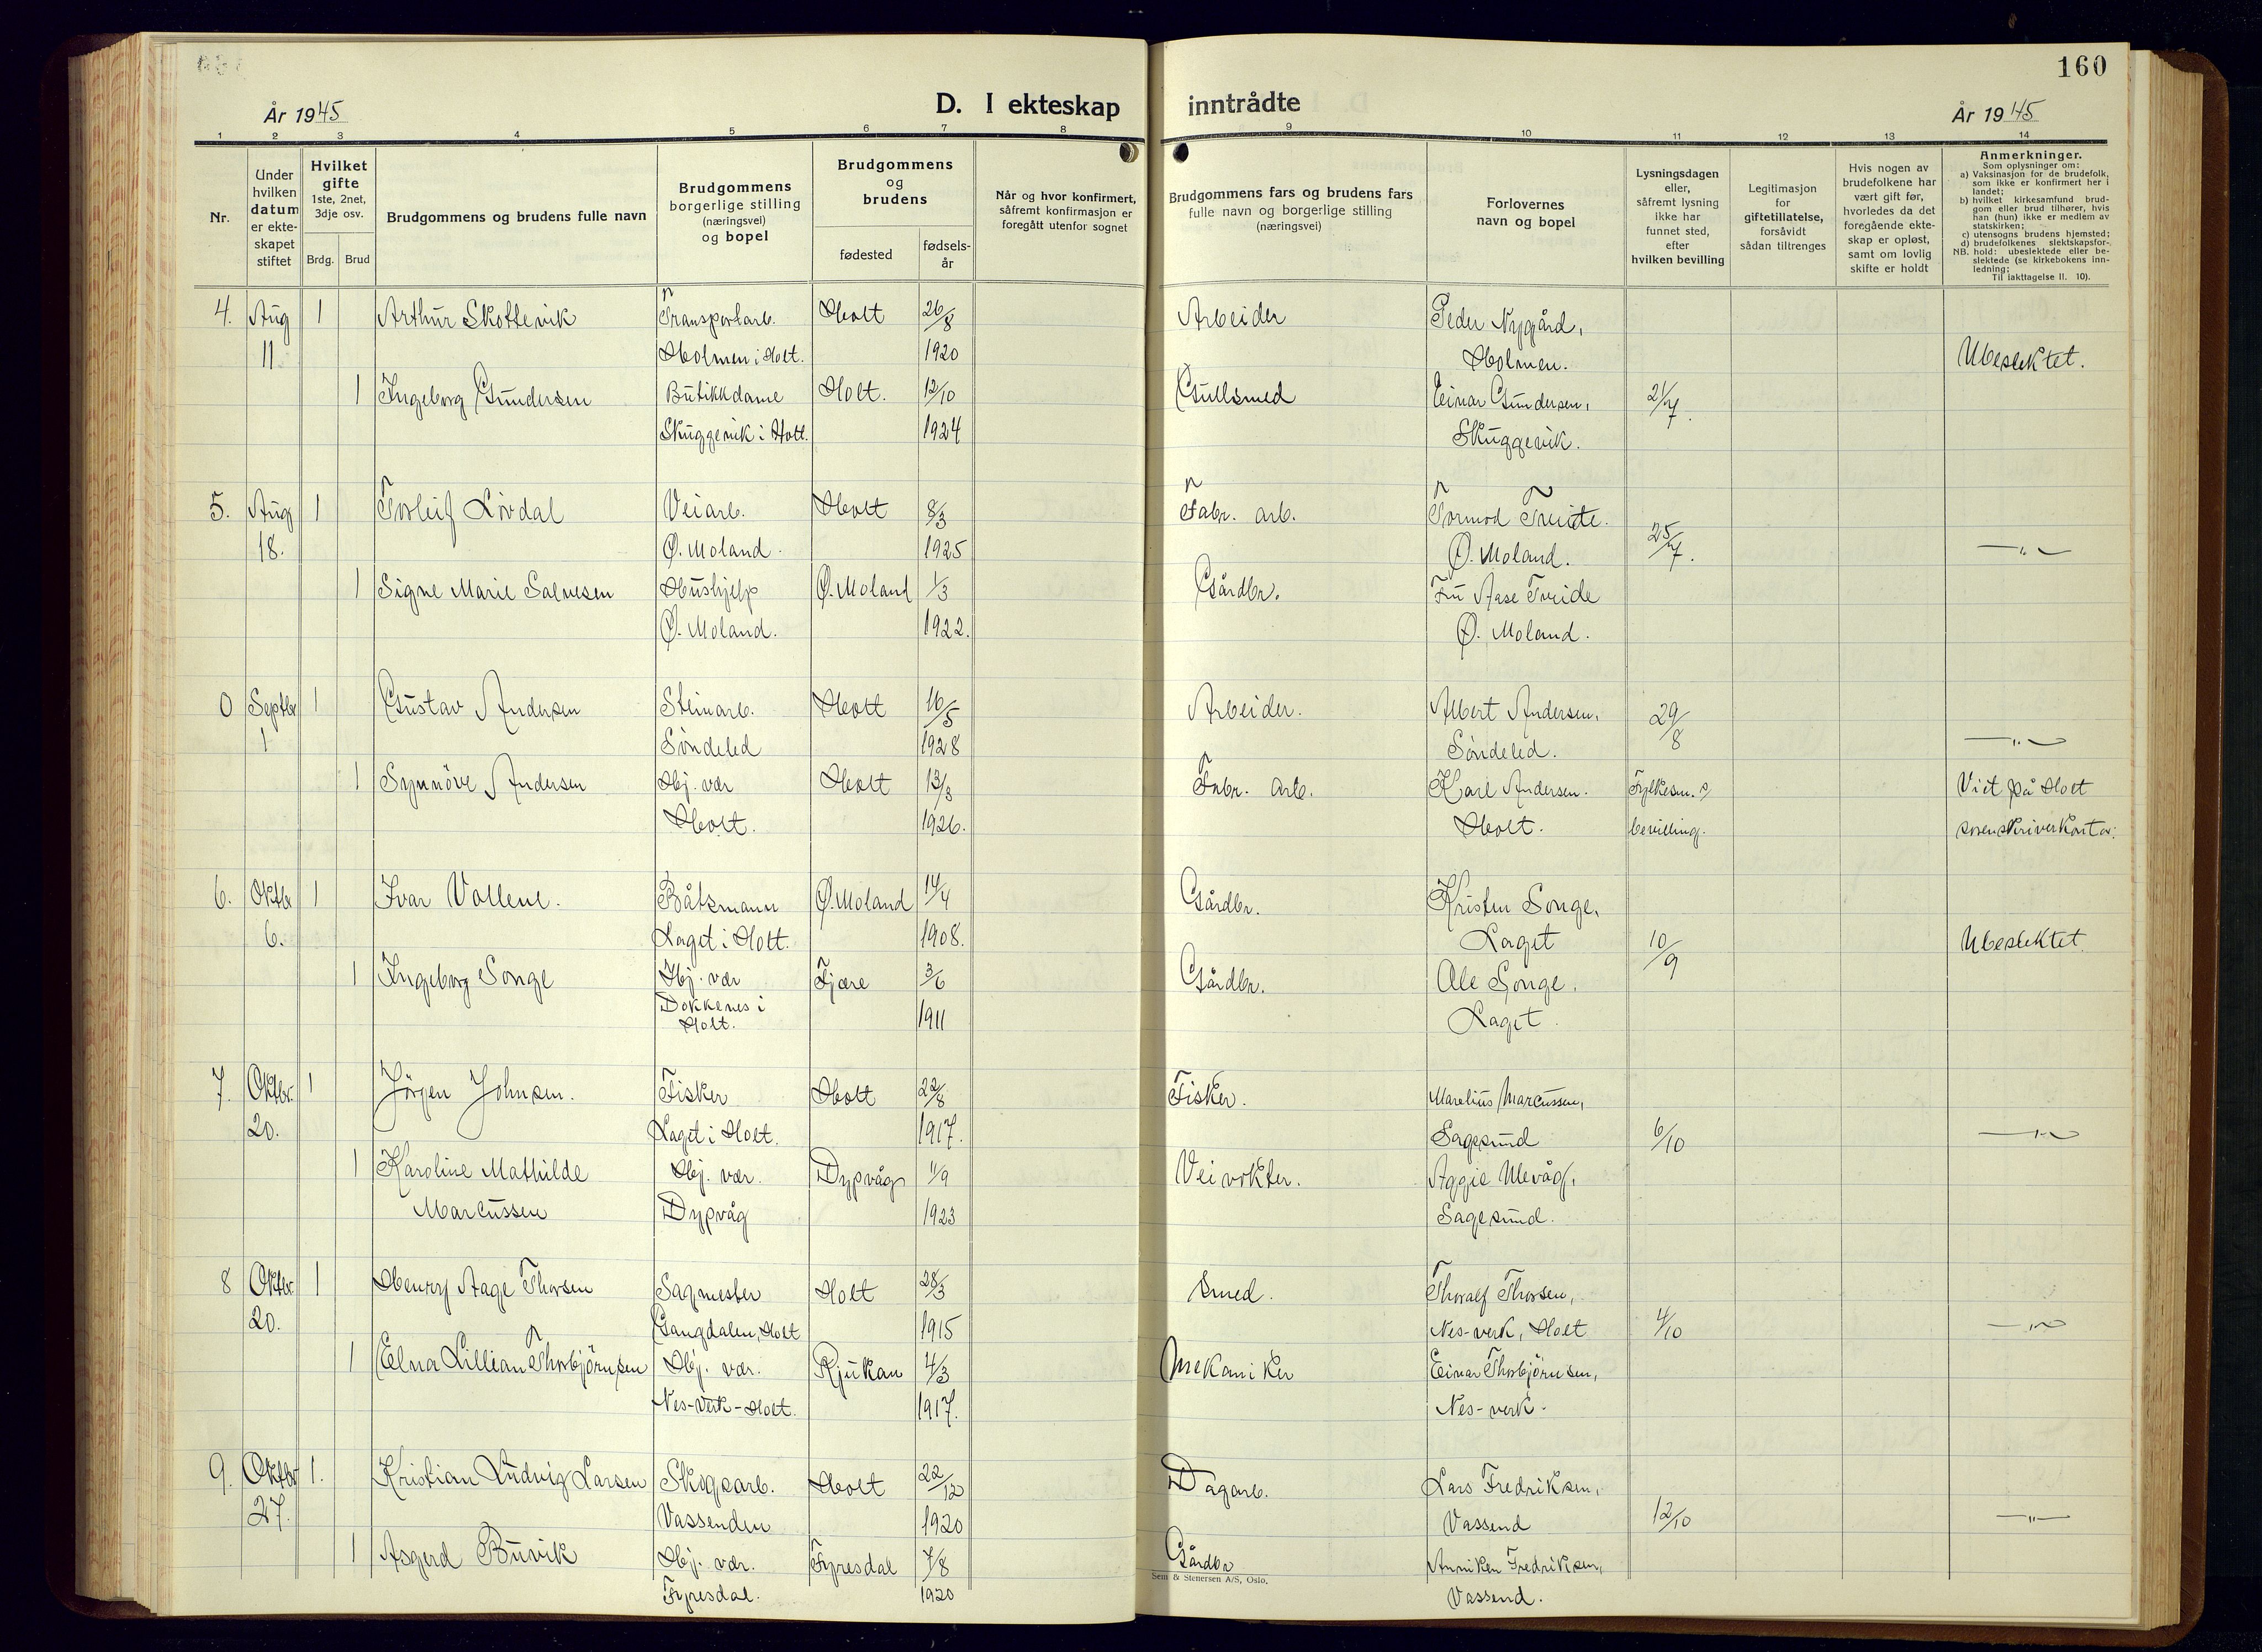 160
År 1945
D. I ekteskap inntrådte
År 1945
1 2 3 4 5 6 7 8 9 10 11 12 13 14
Nr.
Under
hvilken
datum
er ekte-
skapet
stiftet
Hvilket
gifte
1ste, 2net,
3dje osv.
Brdg. Brud
Brudgommens og brudens fulle navn
Brudgommens
borgerlige stilling
(næringsvei)
og bopel
Brudgommens
og
brudens
fødested
fødsels-
år
Når og hvor konfirmert,
såfremt konfirmasjon er
foregått utenfor sognet
Brudgommens fars og brudens fars
fulle navn og borgerlige stilling
(næringsvei)
Forlovernes
navn og bopel
Lysningsdagen
eller,
såfremt lysning
ikke har
funnet sted,
efter
hvilken bevilling
Legitimasjon
for
giftetillatelse,
forsåvidt
sådan tiltrenges
Hvis nogen av
brudefolkene har
vært gift før,
hvorledes da det
foregående ekte-
skap er opløst,
samt om lovlig
skifte er holdt
Anmerkninger.
Som oplysninger om:
a) Vaksinasjon for de brudefolk,
som ikke er konfirmert her i
landet;
b) hvilket kirkesamfund brud-
gom eller brud tilhører, hvis
han (hun) ikke er medlem av
statskirken;
c) utensogns brudens hjemsted;
d) brudefolkenes slektskapsfor-
NB. hold: ubeslektede eller be-
slektede (se kirkebokens inn-
ledning;
Til iakttagelse II. 10).
4. Aug 1 Arthur Skottevik Transportarb. Holt 26/8 Arbeider Peder Nygård,
11. Holmen i Holt. 1920 Holmen. Ubeslektet.
1 Ingeborg Gundersen Butikkdame Holt. 12/10 Gullsmed Einar Gundersen, 21/7.
Skuggevik i Holt. 1924 Skuggevik.
5. Aug 1 Torleif Lövdal Veiarb. Holt 8/3 Fabr. arb. Tormod Treide.
18. Ø. Moland. 1925 Ø. Moland. 25/7. —"—
1 Signe Marie Salvesen Hushjelp Ø. Moland 1/3 Gårdbr. Fru Aase Treide
Ø. Moland. 1922. Ø. Moland.
0 Septbr 1 Gustav Andersen Steinarb. Holt 16/5 Arbeider. Albert Andersen, 29/8
1 Söndeled 1928 Söndeled. —"—
1 Synnöve Andersen Hj. vær Holt 13/3 Fabr. arb. Karl Andersen. Fylkesm. Viet på Holt
Holt. 1926. Holt. bevilling. sorenskriverkontor.
6. Oktbr 1 Ivar Vollene. Båtsmann Ø. Moland 14/4 Gårdbr. Kristen Songe,
6. Laget i Holt. 1908. Laget 10/9 Ubeslektet.
1 Ingeborg Songe Hj. vær Fjære 3/6 Gårdbr. Ole Songe,
Dokkenes i Holt. 1911 Laget.
7. Oktbr. 1 Jörgen Johnsen. Fisker Holt 22/8 Fisker. Marelius Marcussen,
20. Laget i Holt. 1917. Sagesund 6/10 —"—
1 Karoline Mathilde Hj. vær. Dypvåg 11/9 Veivokter. Aggie Ulevåg,
Marcussen Dypvåg 1923 Sagesund.
8 Oktbr. 1 Henry Aage Thorsen Sagmester Holt 28/3 Smed. Thoralf Thorsen,
20. Gangdalen, Holt 1915 Nes-verk, Holt 4/10 —"—
1 Elna Lillian Thorbjörnsen Hj. vær. Rjukan 4/3 Mekaniker Einar Thorbjörnsen,
Nes-Verk-Holt. 1917. Nes-verk.
9. Oktbr 1. Kristian Ludvig Larsen Skogsarb. Holt 22/12 Dagarb. Lars Fredriksen,
27. Vassenden 1920 Vassend 12/10 —"—
1 Asgerd Buvik Hj. vær. Fyresdal 7/8 Gårdbr Anniken Fredriksen,
Fyresdal. 1920 Vassend.
Sem & Stenersen A/S, Oslo.